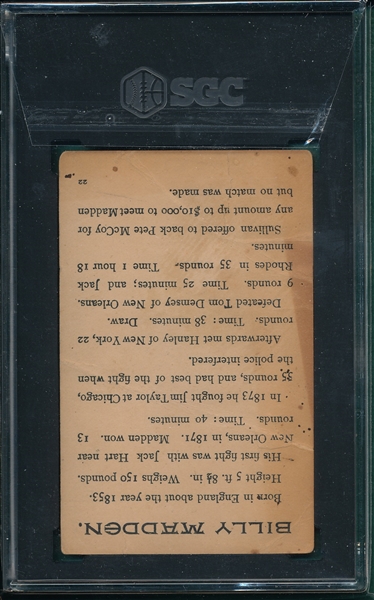 SGC
BILLY MADDEN.
Born in England about the year 1853.
Height 5 ft. 8½ in. Weighs 150 pounds.
His first fight was with Jack Hart near
New Orleans, in 1871. Madden won. 13
rounds. Time: 40 minutes.
In 1873 he fought Jim Taylor at Chicago,
35 rounds, and had best of the fight when
the police interfered.
Afterwards met Hanley of New York, 22
rounds. Time: 38 minutes. Draw.
Defeated Tom Demsey of New Orleans.
9 rounds. Time 25 minutes; and Jack
Rhodes in 35 rounds. Time 1 hour 18
minutes.
Sullivan offered to back Pete McCoy for
any amount up to $10,000 to meet Madden
but no match was made.
22